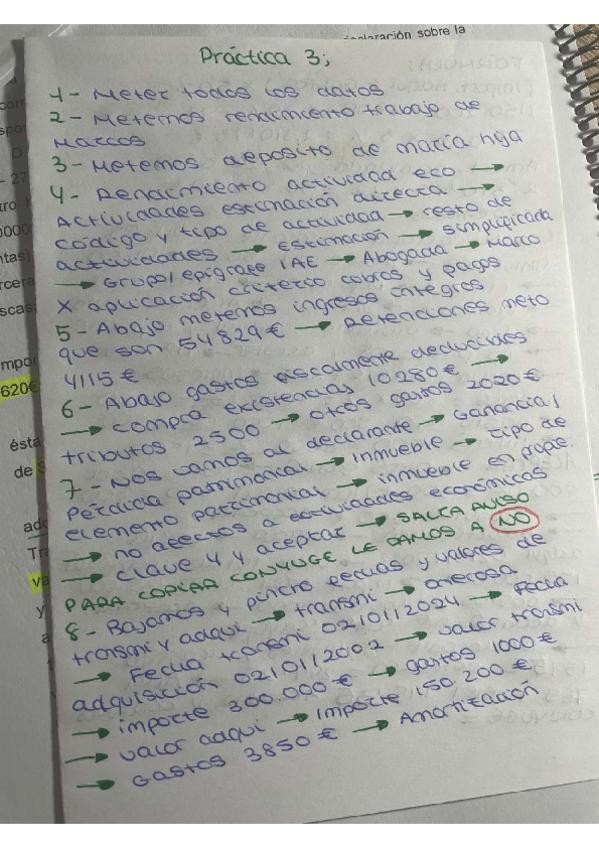 claración sobre la
Práctica 3;
1- Meter todos los datos
2- Metemos rendimiento trabajo de
Marcos
3- Metemos deposito de maría hija
4- Rendimiento actividad eco →
Actividades estimación directa →
código y tipo de actividad → resto de
actividades → estimación → simplificada
→ Grupo/epígrafe IAE → Abogada → Marco
X aplicación criterio cobros y pagos
5- Abajo metemos ingresos íntegros
que son 54829€ → Retenciones meto
4115€
6- Abajo gastos fiscalmente deducibles
→ compra existencias 10280€ →
tributos 2500 → otros gastos 2020€
7- Nos vamos al declarante → Ganancia/
Pérdida patrimonial → inmueble → tipo de
elemento patrimonial → inmueble en prope.
→ no afectos a actividades económicas
→ clave 4 y aceptar → SALTA AVISO
PARA COPIAR CONYUGE LE DAMOS A NO
8- Bajamos y pincho fechas y valores de
transmi y adqui → transmi → onerosa
→ Fecha transmi 02/01/2024 → Fecha
adquisición 02/01/2002 → valor transmi
→ importe 300.000€ → gastos 1000€
→ valor adqui → Importe 150.200€
→ Gastos 3850€ → Amortización
620€
ésta
de
Tr
va
y
a